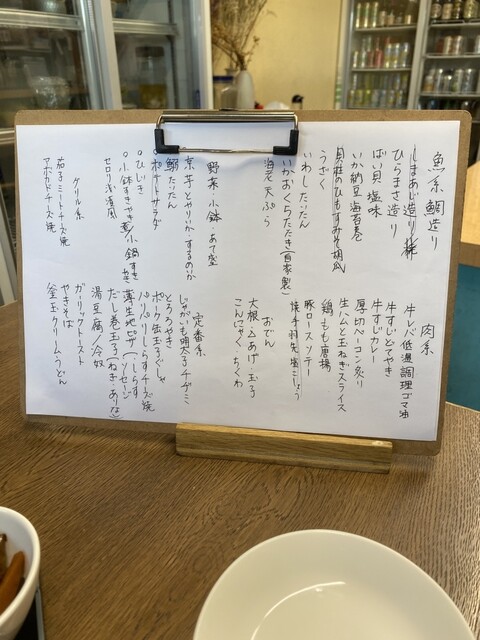 魚系 鯛造り
しまあじ造り
ひらまさ造り
ばい貝 塩味
いか納豆海苔巻
貝柱のひもすみそ胡瓜
うざく
いわしたたたん
いかおくらたたき(自家製)
海老天ぷら
野菜、小鉢・あて盛
京、子とやりいか するのか
鰯たたん
ポテトサラダ
ひじき
小鉢すきやき煮/小鍋すき
セロリ浅漬風
ケイル系
茄子ミートチーズ焼
アボカドチーズ焼
肉系
牛レバ低温調理ゴマ油
牛すじどてやき
牛すじカレー
厚切ベーコン炙り
生ハムと玉ねぎスライス
鶏もも唐揚
豚ロースソテー
焼手羽先塩こしょう
おでん
大根・厶あげ・玉子
こんにゃく・ちくわ
定番系
じゃがいも明太子チヂミ
とろろやき
ポーク缶玉子ぐしゃ
パリパリしらすチーズ焼
薄生地ピザ(しらす
ソーセージ
だし巻玉子(ねぎ・ありな)
湯豆腐/冷奴
ガーリックトースト
やきそば
釜玉クリームうどん